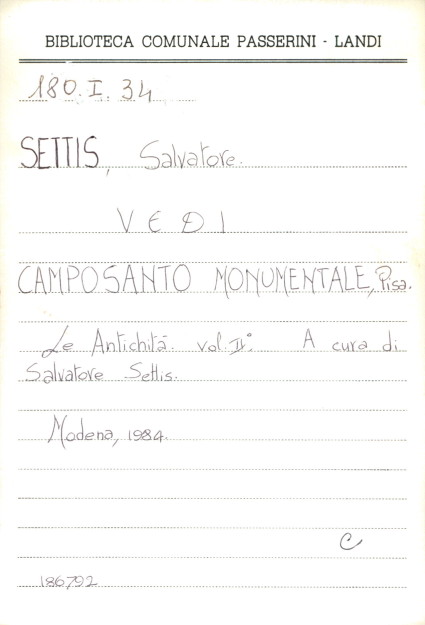 BIBLIOTECA COMUNALE PASSERINI - LANDI
180.I.34
SETTIS, Salvatore.
VEDI
CAMPOSANTO MONUMENTALE, Pisa.
Le Antichità. vol. II°. A cura di
Salvatore Settis.
Modena, 1984.
C
186792